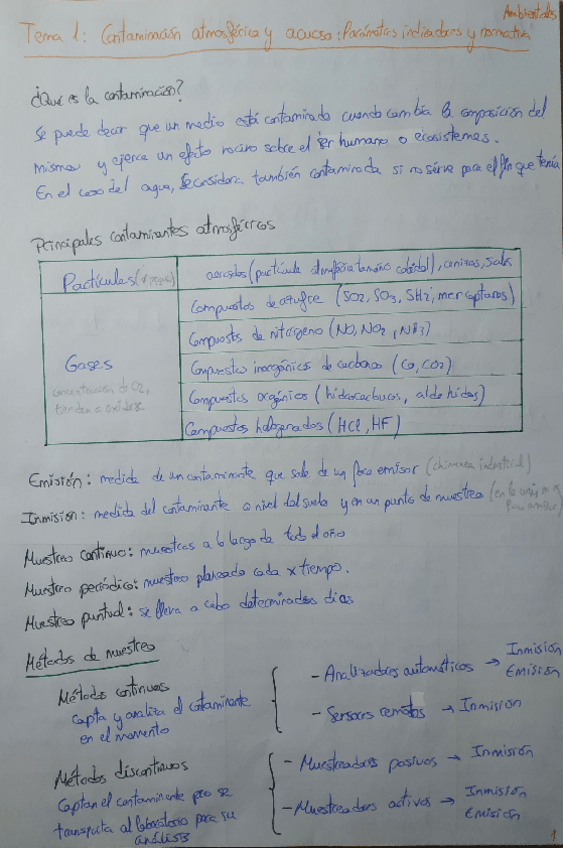 Ambientales
Tema 1: Contaminación atmosférica y acuosa: Parámetros indicadores y normativa
¿Qué es la contaminación?
Se puede decir que un medio está contaminado cuando cambia la composición del
mismo y ejerce un efecto nocivo sobre el ser humano o ecosistemas.
En el caso del agua, se considera también contaminada si no sirve para el fin que tenía
Principales contaminantes atmosféricos
Partículas
aerosoles (partícula atmosférica tamaño coloidal), cenizas, sales
Gases
concentración de O2,
tienden a oxidarse
Compuestos de azufre (SO2, SO3, SH2, mercaptanos)
Compuestos de nitrógeno (NO, NO2, NH3)
Compuestos inorgánicos de carbono (CO, CO2)
Compuestos orgánicos (hidrocarburos, aldehídos)
Compuestos halogenados (HCl, HF)
Emisión: medida de un contaminante que sale de un foco emisor (chimenea industrial)
Inmisión: medida del contaminante a nivel del suelo y en un punto de muestreo
Muestreo continuo: muestras a lo largo de todo el año
Muestreo periódico: muestreo planeado cada x tiempo.
Muestreo puntual: se lleva a cabo determinados días
Métodos de muestreo
Métodos continuos
Capta y analiza el contaminante
en el momento
- Analizadores automáticos → Inmisión
Emisión
- Sensores remotos → Inmisión
Métodos discontinuos
Captan el contaminante pero se
transporta al laboratorio para su
análisis
- Muestreadores pasivos → Inmisión
- Muestreadores activos → Inmisión
Emisión
1